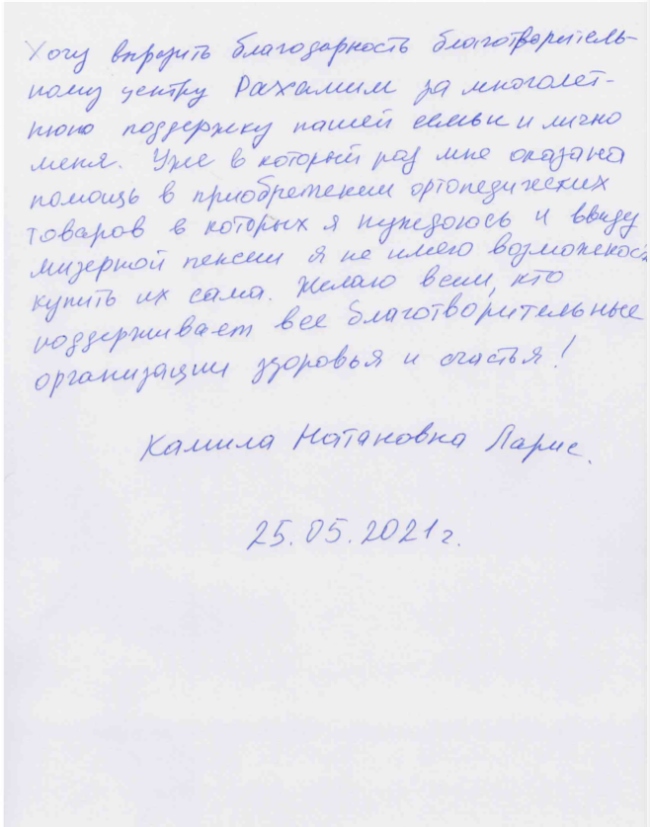 Хочу выразить благодарность благотворитель-
ному центру Рахамим за многолет-
нюю поддержку нашей семьи и лично
меня. Уже в который раз мне оказана
помощь в приобретении ортопедических
товаров в которых я нуждаюсь и ввиду
мизерной пенсии я не имею возможност
купить их сама. Желаю всем, кто
поддерживает все благотворительные
организации здоровья и счастья!
Хамила Натановна Ларис.
25.05.2021г.